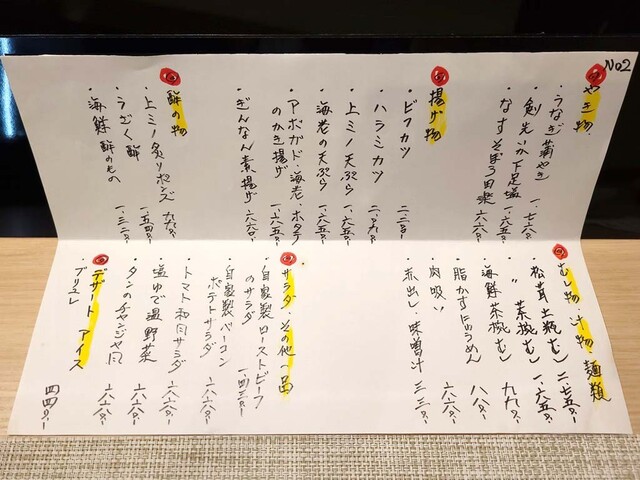 No2
やき物
・うなぎ蒲やき 一、七六〇-
・剣先いか下足塩 六六〇-
・なすそぼろ田楽 六六〇-
揚げ物
・ビフカツ 二、二〇〇-
・ハラミカツ 二、〇九〇-
・上ミノ天ぷら 一、六五〇-
・海老の天ぷら 一、六五〇-
・アボガド・海老・ホタテ
のかき揚げ 一、六五〇-
・ぎんなん素揚げ 六六〇-
酢の物
・上ミノ炙りポンズ 九九〇-
・うざく酢 一、五四〇-
・海鮮酢のもの 一、三二〇-
むし物・汁物・麺類
・松茸土瓶むし 二、七五〇-
・〃 茶椀むし 一、六五〇-
・海鮮茶椀むし 九九〇-
・脂かすにゅうめん 八八〇-
・肉吸い 六六〇-
・赤出し・味噌汁 三三〇-
サラダ・その他一品
・自家製ローストビーフ
のサラダ 一、四三〇-
・自家製ベーコン
ポテトサラダ 六六〇-
・トマト和風サラダ 六六〇-
・塩ゆで温野菜 六六〇-
・タンのチャンジャ風 六六〇-
デザート アイス
ブリュレ 四四〇-